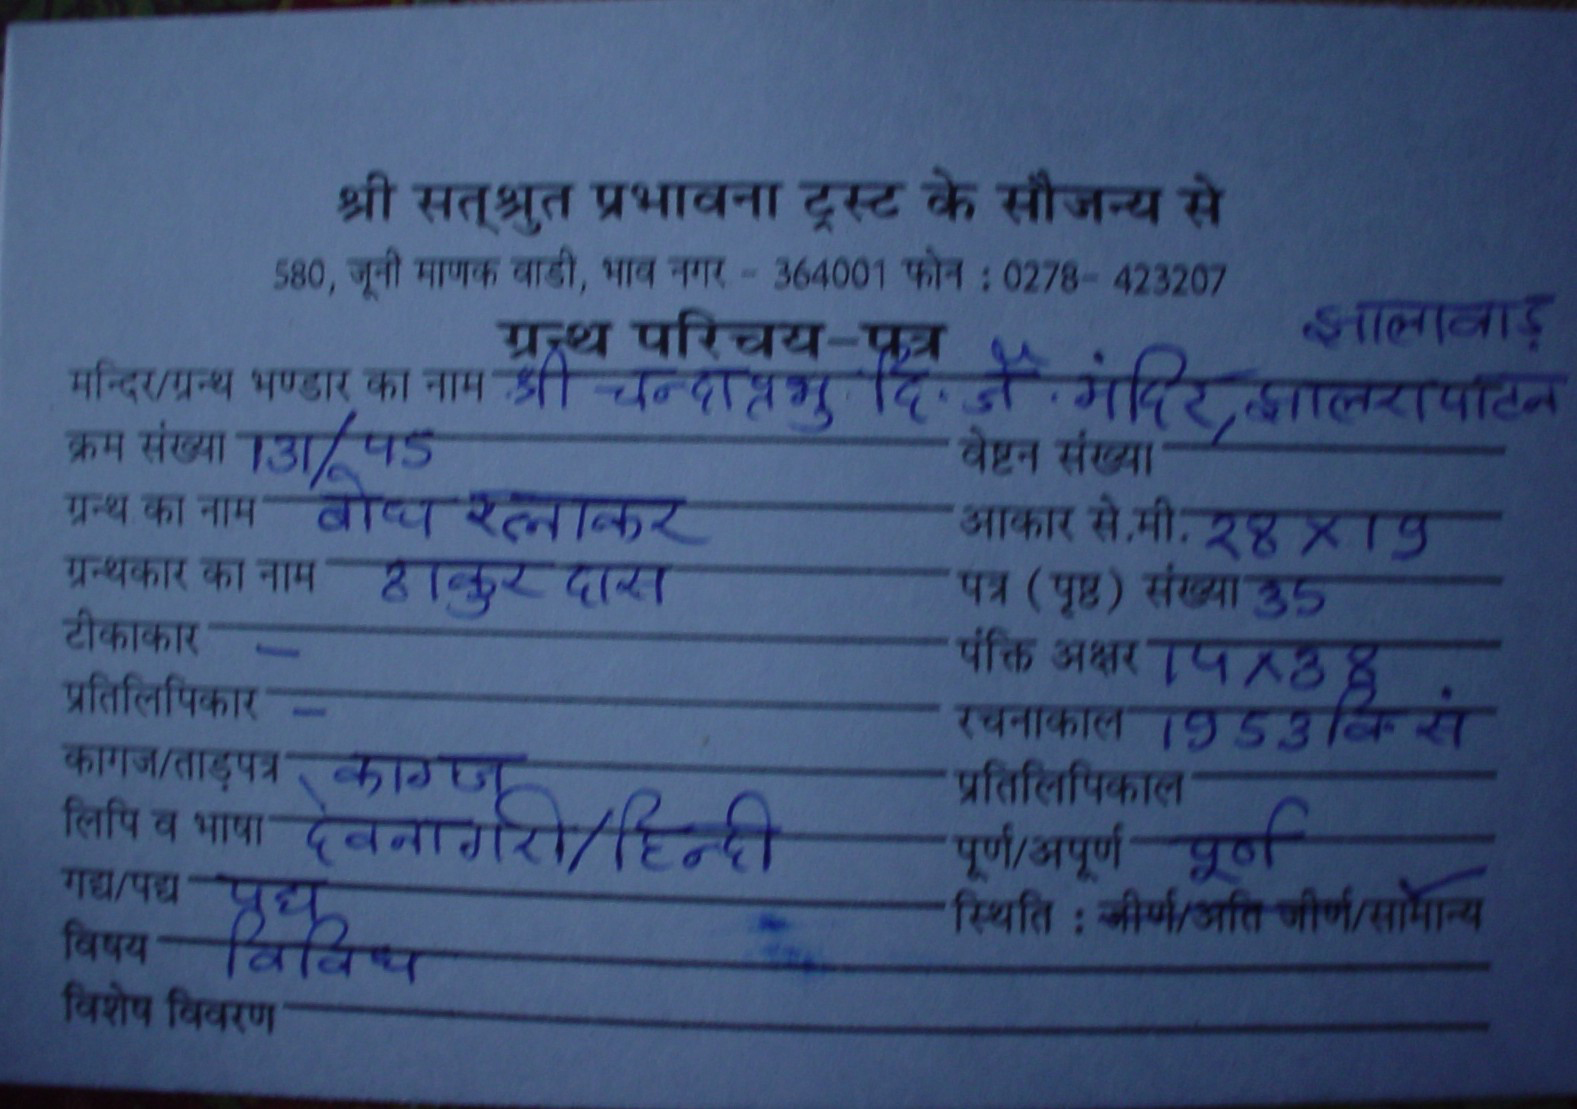 श्री सत्श्रुत प्रभावना ट्रस्ट के सौजन्य से
580, जूनी माणक वाडी, भाव नगर - 364001 फोन : 0278- 423207
ग्रन्थ परिचय-पत्र
झालावाड़
मन्दिर/ग्रन्थ भण्डार का नाम श्री चन्दाप्रभु दि. जै. मंदिर, झालरापाटन
क्रम संख्या 131/45 वेष्टन संख्या
ग्रन्थ का नाम बोध रत्नाकर आकार से.मी. 28 X 19
ग्रन्थकार का नाम ठाकुर दास पत्र (पृष्ठ) संख्या 35
टीकाकार - पंक्ति अक्षर 14 X 38
प्रतिलिपिकार - रचनाकाल 1953 वि सं
कागज/ताड़पत्र कागज प्रतिलिपिकाल
लिपि व भाषा देवनागरी/हिन्दी पूर्ण/अपूर्ण पूर्ण
गद्य/पद्य पद्य स्थिति : जीर्ण/अति जीर्ण/सामान्य
विषय विविध
विशेष विवरण